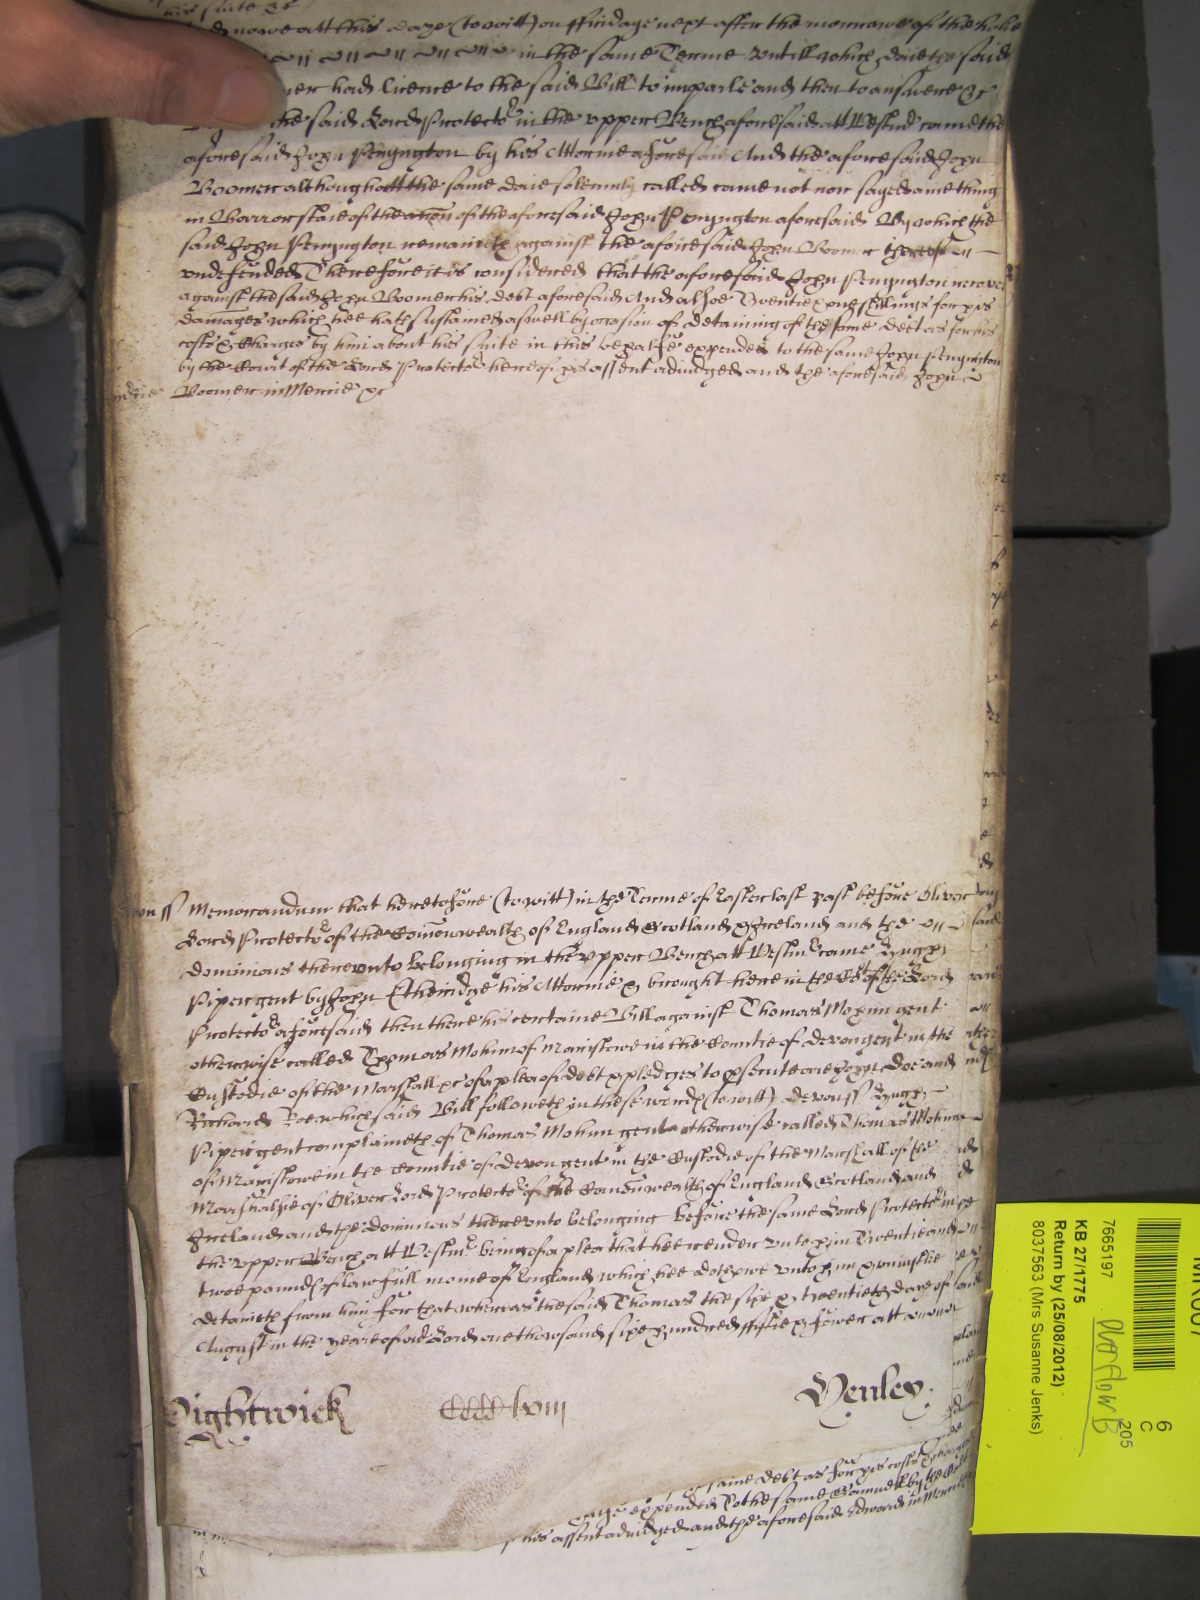 his suite &c
nowe att this daye (to witt) on ffridaye next after the morrowe of the holie
in the same Terme untill which daie the said
had licence to the said Bill to imparle and then to answere &c
the said Lord Protector in the upper Bench aforesaid att Westmr came the
aforesaid John Penyngton by his Attornie aforesaid And the aforesaid John
Boomer although att the same daie solemnly called came not nor sayed anie thing
in Barr or staie of the accon of the aforesaid John Penyngton aforesaid By which the
said John Penyngton remaineth against the aforesaid John Boomer thereof
undefended Therefore it is considered that the aforesaid John Penyngton recover
against the said John Boomer his debt aforesaid And alsoe Twentie one shillings for his
damages which hee hath susteined aswell by occasion of detaining of the same debt as for his
costs & charges by him about his suite in this behalfe expended to the same John Penyngton
by the Court of the Lord Protector here of his assent adiudged and the aforesaid John
Boomer in Mercie &c
ss Memorandum that heretofore (to witt) in the Terme of Easter last past before Oliver
Lord Protector of the Comonwealth of England Scotland & Ireland and the
dominions thereunto belonging in the upper Bench att Westmr came Hugh
Piper gent by John Etheridge his Attornie & brought here in the Ct of the Lord
Protector aforesaid then there his certaine Bill against Thomas Mohun gent
otherwise called Thomas Mohun of Maristowe in the Countie of Devon gent in the
Custodie of the Marshall &c of a plea of debt & pledges to psecute are John Doe and
Richard Roe which said Bill followeth in these words (to witt) Devon ss Hugh
Piper gent complaineth of Thomas Mohun gent otherwise called Thomas Mohun
of Maristowe in the Countie of Devon gent in the Custodie of the Marshall of the
Marshalsie of Oliver Lord Protector of the Comonwealth of England Scotland and
Ireland and the Dominions thereunto belonging before the same Lord Protector in
the upper Bench att Westmr being of a plea that hee render unto him Twentie and
twoe pounds of lawfull monie of England which hee doth owe unto him & uniustlie
detaineth from him for that whereas the said Thomas the sixe & twentieth daye of
August in the yeare of our Lord one thowsand sixe hundred fiftie & fower att
Wightwick
CCCClviii
Henley.
same debt as for his costs & charges
expended To the same Samuell by the Court
his assent adiudged and the aforesaid Edward in Mercie
7665197
KB 27/1775
Return by (25/08/2012)
8037563 (Mrs Susanne Jenks)
Overflow B
205
6
C